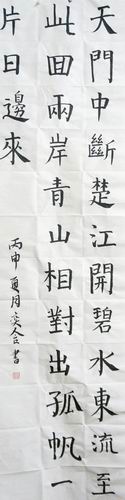 天門中斷楚江開碧水東流至
此回兩岸青山相對出孤帆一
片日邊來
丙申夏月奕含書